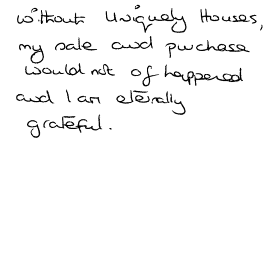 without Uniquely Houses,
my sale and purchase
would not of happened
and I am eternally
grateful.